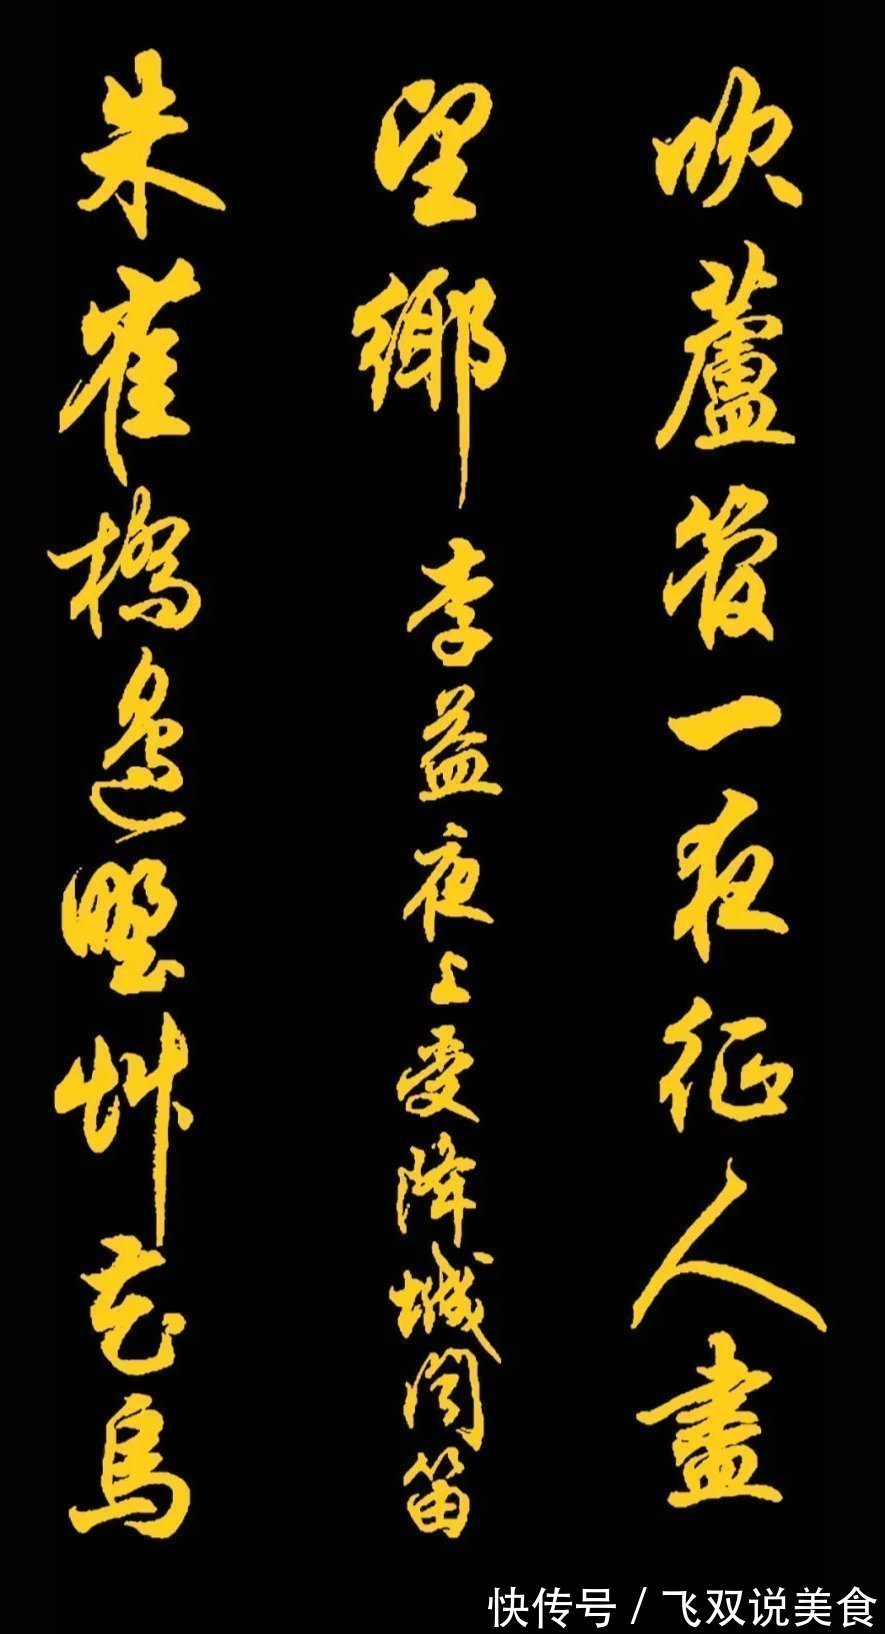 吹蘆管一夜征人盡
望鄉李益夜上受降城闻笛
朱雀橋邊野艸花烏
快传号 / 飞双说美食